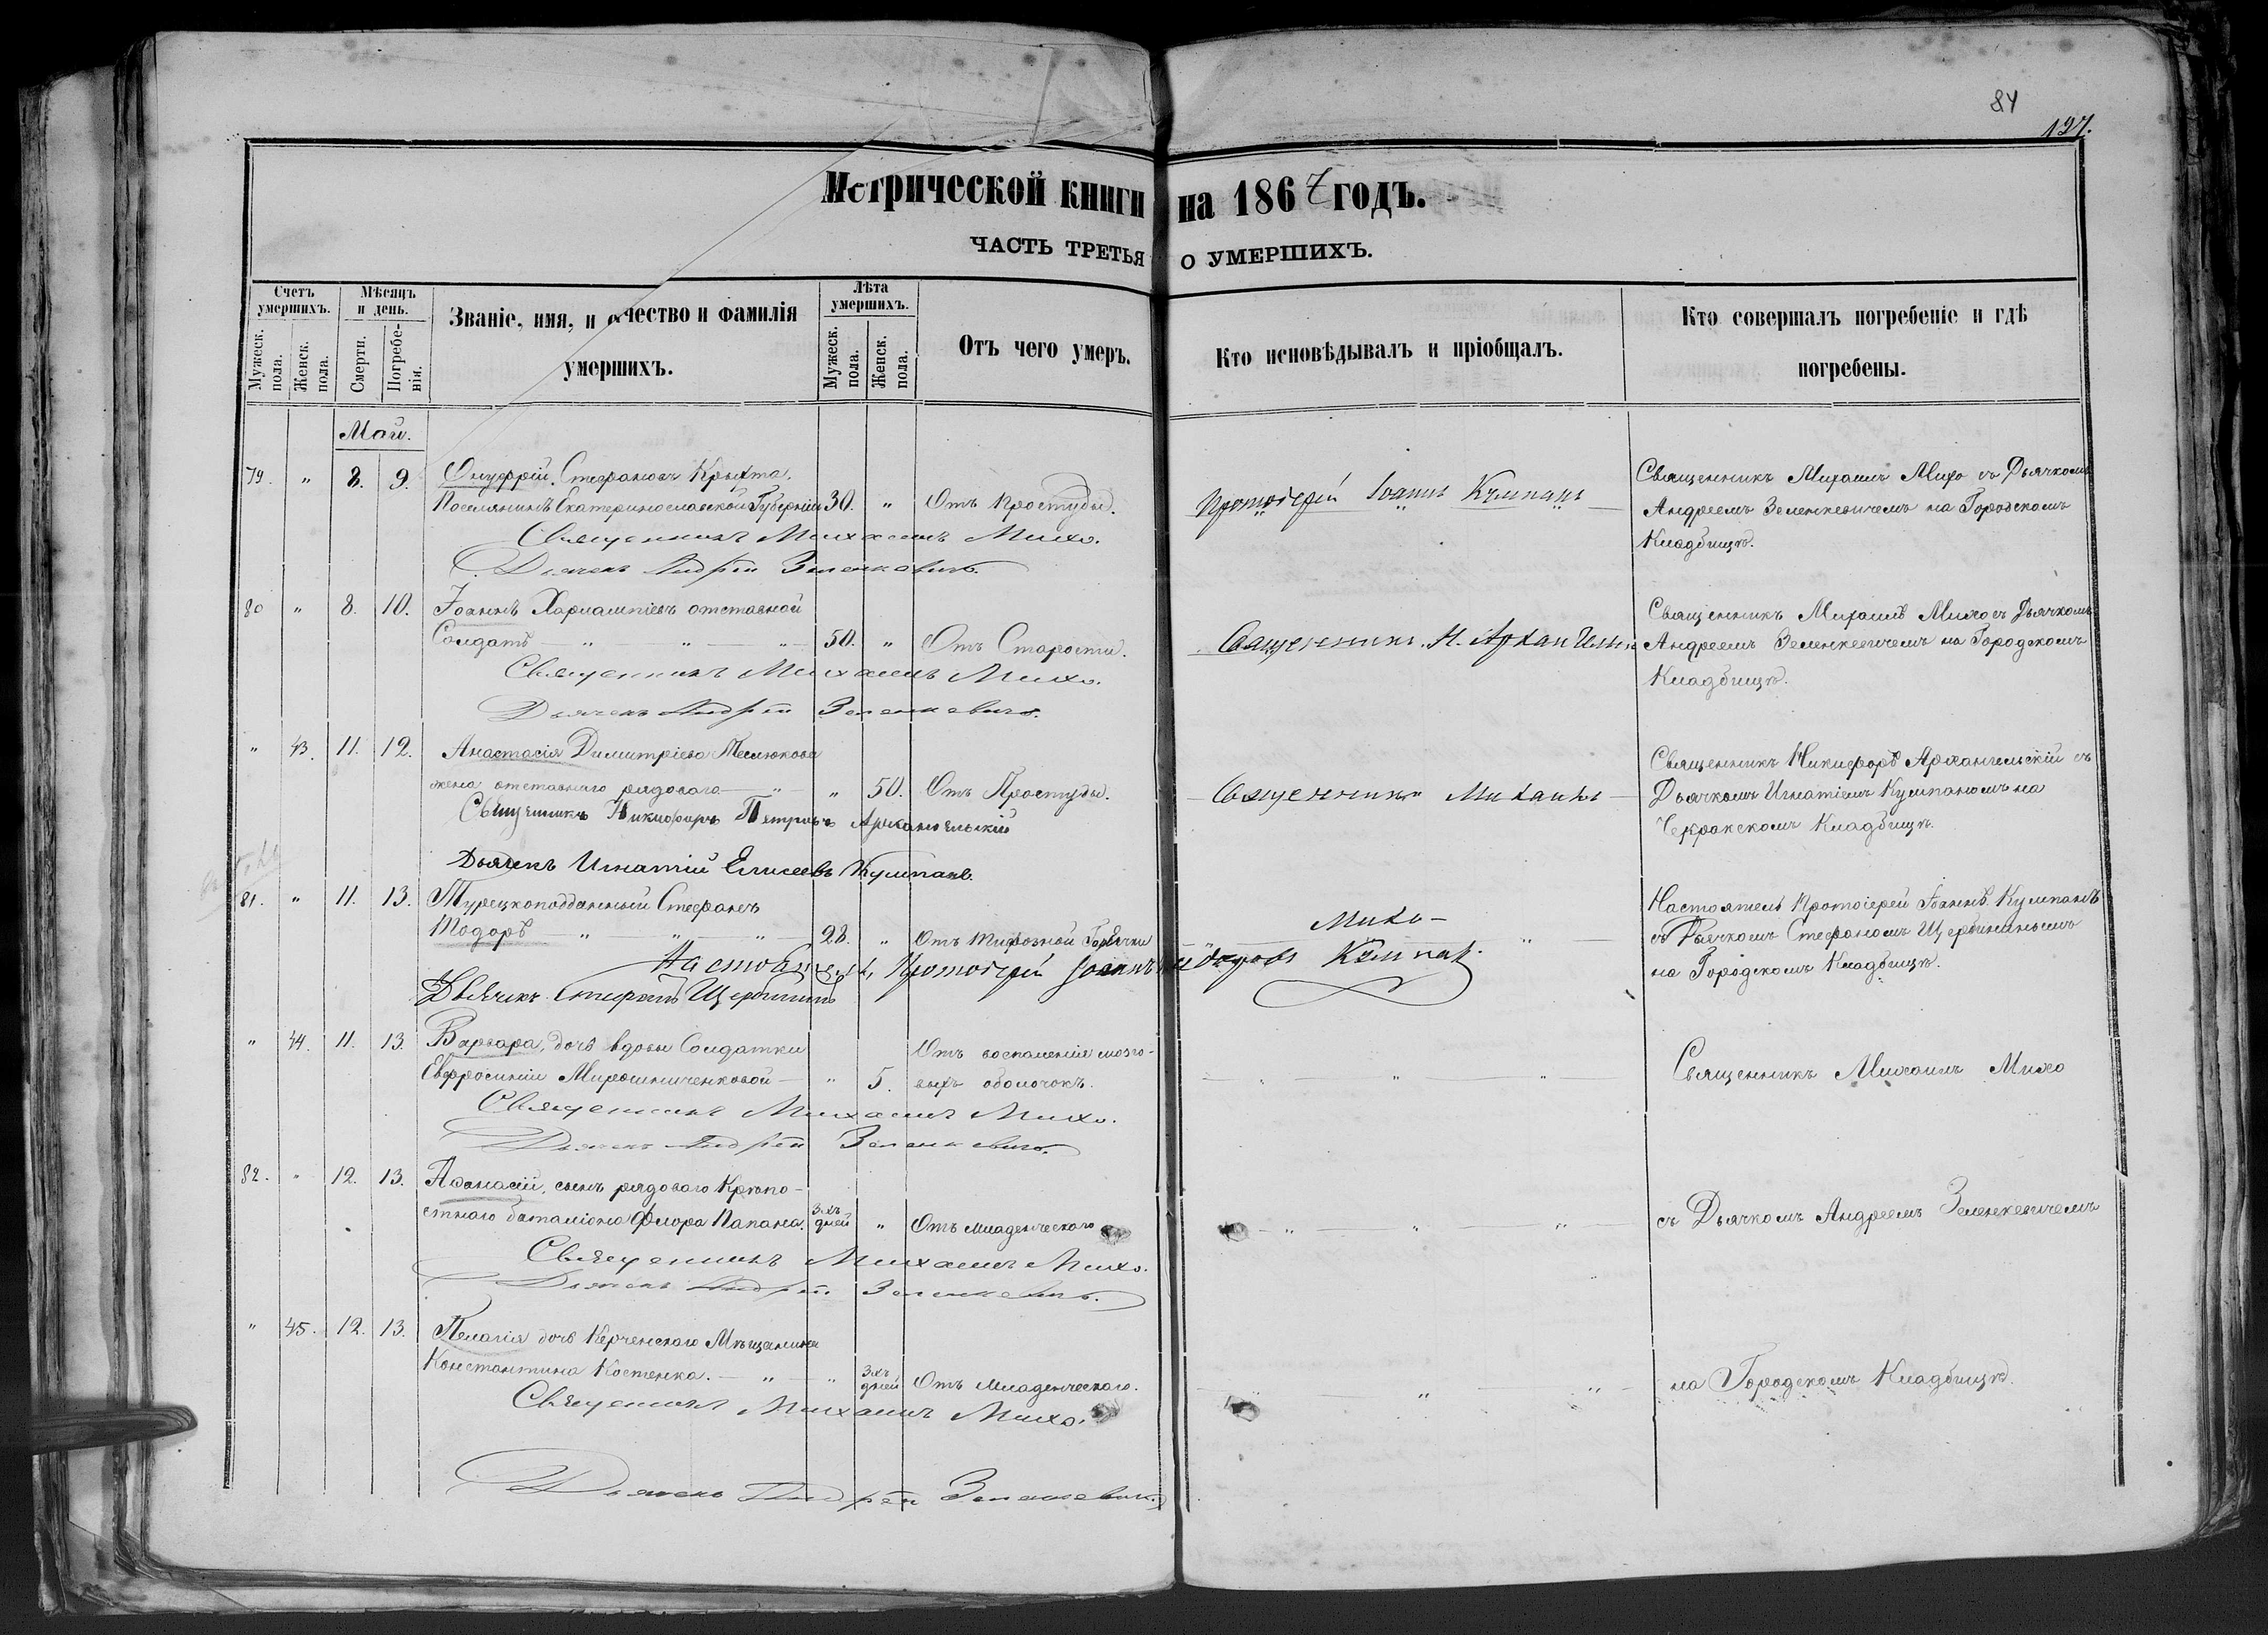 84
127.
Метрической книги на 1867 годъ.
ЧАСТЬ ТРЕТЬЯ О УМЕРШИХЪ.
Счетъ умершихъ.
Мужеск. пола.
Женск. пола.
Мѣсяцъ и день.
Смерти.
Погребенія.
Званіе, имя, и отчество и фамилія
умершихъ.
Лѣта умершихъ.
Мужеск. пола.
Женск. пола.
Отъ чего умеръ.
Кто исповѣдывалъ и пріобщалъ.
Кто совершалъ погребеніе и гдѣ
погребены.
Май.
79. " 8. 9. Онуфрій Стефановъ Крыхта,
Поселянинъ Екатеринославской Губерніи 30. " Отъ Простуды.
Протоіерей Іоаннъ Кумпанъ
Священникъ Михаилъ Михо съ Дьячкомъ
Андреемъ Зеленкевичемъ на Городскомъ
Кладбищѣ.
Священникъ Михаилъ Михо.
Дьячекъ Андрей Зеленкевичъ.
80 " 8. 10. Іоаннъ Харлампіевъ отставной
Солдатъ " " " 50. " Отъ Старости.
Священникъ Н. Архангельск
Священникъ Михаилъ Михо съ Дьячкомъ
Андреемъ Зеленкевичемъ на Городскомъ
Кладбищѣ.
Священникъ Михаилъ Михо.
Дьячекъ Андрей Зеленкевичъ.
" 43. 11. 12. Анастасія Димитріева
жена отставнаго рядоваго " " 50. Отъ Простуды.
Священникъ Михаилъ
Священникъ Никифоръ Архангельскій съ
Дьячкомъ Игнатіемъ Кумпаномъ на
Кладбищѣ.
Священникъ Никифоръ Петровъ Архангельскій
Дьячекъ Игнатій Елисеевъ Кумпанъ.
81. " 11. 13. Турецкоподданный Стефанъ
Тодоръ " " " 28. " Отъ тифозной Горячки
Михо "
Настоятель Протоіерей Іоаннъ Кумпанъ
съ Дьячкомъ Стефаномъ Щербининымъ
на Городскомъ Кладбищѣ.
Настоятель Протоіерей Іоаннъ Кумпан.
Дьячекъ Стефанъ Щербининъ
" 44. 11. 13. Варвара, дочь вдовы Солдатки
Евфросиніи Мирошниченковой " 5. Отъ воспаленія мозго-
выхъ оболочекъ.
" " "
Священникъ Михаилъ Михо
Священникъ Михаилъ Михо.
Дьячекъ Андрей Зеленкевичъ.
82. " 12. 13. Аѳанасій, сынъ рядоваго Крѣпо-
стнаго баталіона Флора Папана. 3хъ дней " Отъ младенческаго
" " "
съ Дьячкомъ Андреемъ Зеленкевичемъ
Священникъ Михаилъ Михо.
Дьячекъ Андрей Зеленкевичъ.
" 45. 12. 13. Пелагія дочь Керченскаго Мѣщанина
Константина Костенка. " " 3хъ дней Отъ младенческаго.
" " "
на Городскомъ Кладбищѣ.
Священникъ Михаилъ Михо.
Дьячекъ Андрей Зеленкевичъ.